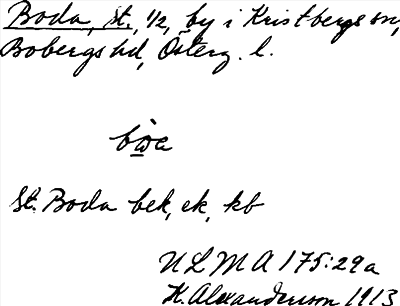 Boda, St., 1/2, by i Kristbergs sn,
Bobergs hd, Österg. l.
bo̲a
St. Boda bek, ek, kb
ULMA 175:29a
H. Alexanderson 1913